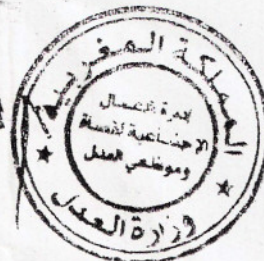 المملكة المغربية
الأعمال
الاجتماعية لقضاة
وموظفي العدل
وزارة العدل